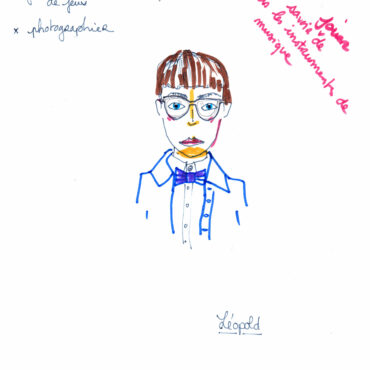 de jeux
x photographier
jouer
savoir de
instruments de
musique
Léopold